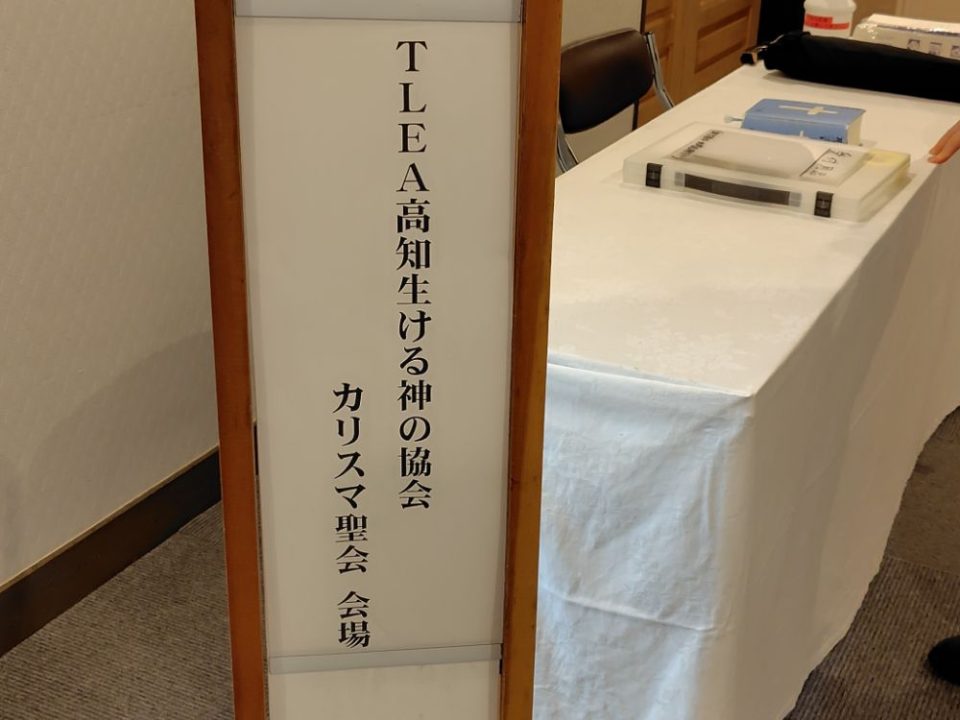 TLEA高知生ける神の協会
カリスマ聖会 会場